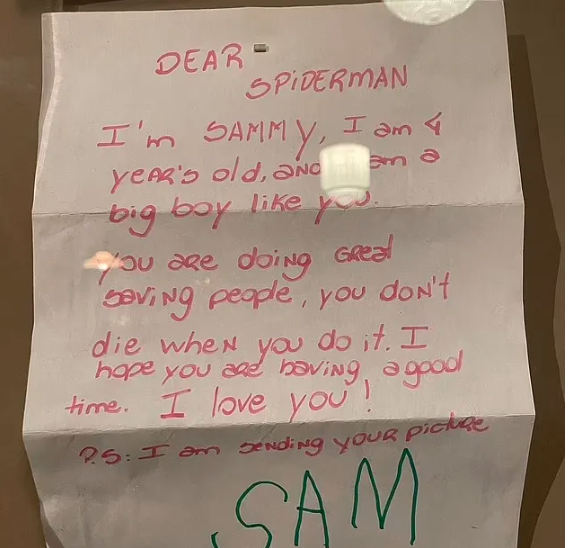 DEAR
SPIDERMAN
I'm SAMMY, I am 4
YEAR'S old, AND am a
big boy like you.
you are doing GREAT
saving people, you don't
die wheN you do it. I
hope you are having a good
time. I love you!
P.S: I am sending your picture
SAM